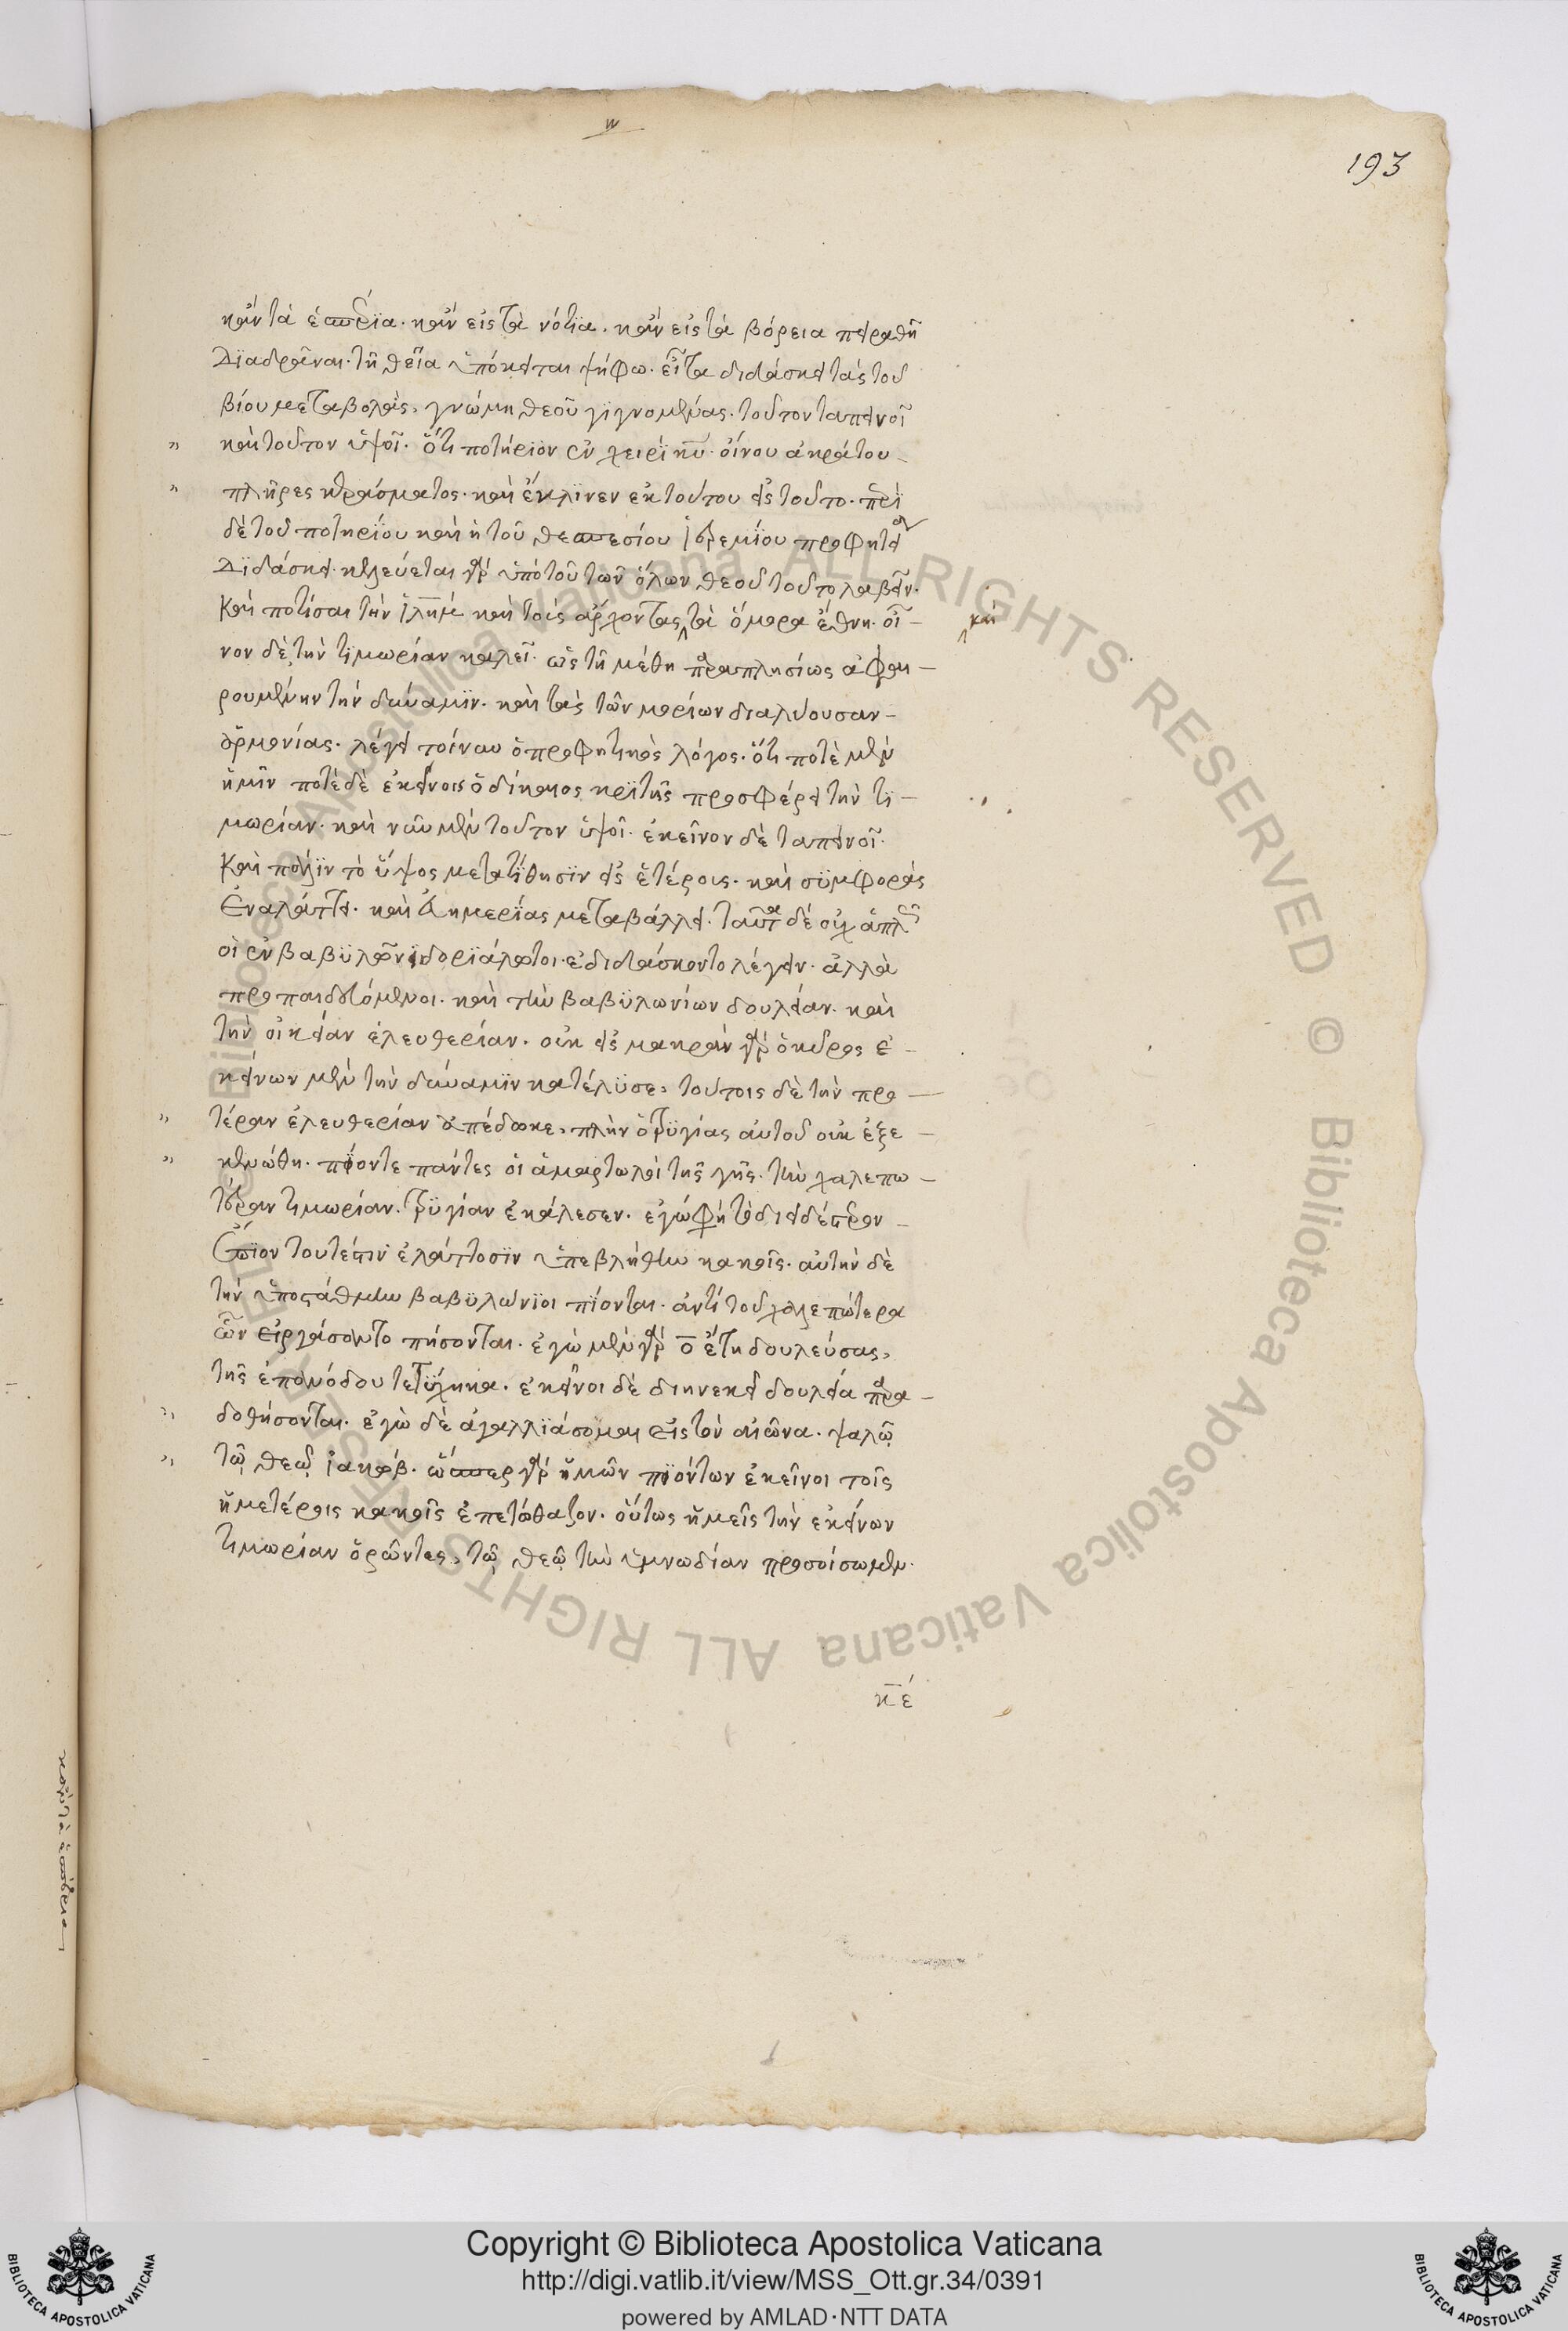 193
κἂν τὰ ἑσπέρια. κἂν εἰς τὰ νότϊα. κἂν εἰς τὰ βόρεια πειραθῆ
Δϊαδρᾶναι. τῆ θεῖα ὑπόκειται ψήφω. εἶτα διδάσκει τὰς τοῦ
βίου μεταβολὰς, γνώμη θεοῦ γϊγνομένας. τοῦτον ταπεινοῖ
καὶ τοῦτον ὑψοῖ. ὅτι ποτήριον ἐν χειρὶ κυ. οἴνου ἀκράτου
πλῆρες κεράσματος. καὶ ἔκλϊνεν ἐκ τούτου εἰς τοῦτο. περὶ
δὲ τοῦ ποτηρίου καὶ ἡ τοῦ θεσπεσίου ἱερεμίου προφητεία
Δϊδάσκει. κελεύεται γὰρ ὑπὸ τοῦ τῶν ὅλων θεοῦ τοῦτο λαβεῖν.
Καὶ ποτίσαι τὴν ἱλημ καὶ τοὺς ἄρχοντας, τὰ ὅμορα ἔθνη. οἶ-
καὶ
νον δὲ τὴν τϊμωρίαν καλεῖ. ὡς τῆ μέθη παραπλησίως ἀφαι-
ρουμένην τὴν δύναμϊν. καὶ τὰς τῶν μορίων διαλύουσαν
ἁρμονίας. λέγει τοίνυν ὁ προφητικὸς λόγος. ὅτι ποτὲ μὲν
ἡμῖν ποτὲ δὲ ἐκείνοις ὁ δίκαιος κρϊτὴς προσφέρει τὴν τϊ-
μωρίαν. καὶ νῦν μὲν τοῦτον ὑψοῖ. ἐκεῖνον δὲ ταπεινοῖ.
Καὶ πάλϊν τὸ ὕψος μετατίθησϊν εἰς ἑτέρους. καὶ σϋμφορὰς
ἐναλάττει. καὶ εὐημερίας μεταβάλλει. ταῦτα δὲ οὐχ ἁπλῶς
οἱ ἐν βαβϋλῶνϊ δορϊάλωτοι. ἐδιδάσκοντο λέγειν. ἀλλὰ
προπαιδευόμενοι. καὶ τὴν βαβϋλωνίων δουλείαν. καὶ
τὴν οἰκείαν ἐλευθερίαν. οὐκ εἰς μακρὰν γὰρ ὁ κῦρος ἐ-
κείνων μὲν τὴν δύναμϊν κατέλϋσε, τούτοις δὲ τὴν προ-
τέραν ἐλευθερίαν ἀπέδωκε, πλὴν ὁ τρϋγίας αὐτοῦ οὐκ ἐξε-
κενώθη. πίονται πάντες οἱ ἁμαρτωλοὶ τῆς γῆς. τὴν χαλεπω-
τέραν τιμωρίαν. τρϋγίαν ἐκάλεσεν. ἐγὼ φὴ τὸ διειδέστερον
ἔπϊον τουτέστιν ἐλάττοσϊν ὑπεβλήθην κακοῖς. αὐτὴν δὲ
τὴν ὑποστάθμην βαβϋλώνϊοι πίονται. ἀντὶ τοῦ χαλεπώτερα
ὧν εἰργάσαντο πήσονται. ἐγὼ μὲν γὰρ ο ἔτη δουλεύσας,
τῆς ἐπανόδου τετϋχηκα. ἐκεῖνοι δὲ διηνεκεῖ δουλεία παρα-
δοθήσονται. ἐγὼ δὲ ἀγαλλϊάσομαι εἰς τὸν αἰῶνα. ψαλῶ
τῷ θεῷ ἰακώβ. ὥσπερ γὰρ ἡμῶν πιόντων ἐκεῖνοι τοῖς
ἡμετέροις κακοῖς ἐπετώθαζον. οὕτως ἡμεῖς τὴν ἐκείνων
τιμωρίαν ὁρῶντες, τῷ θεῷ τὴν ὑμνωδίαν προσοίσωμεν.
κέ
Copyright © Biblioteca Apostolica Vaticana
http://digi.vatlib.it/view/MSS_Ott.gr.34/0391
powered by AMLAD·NTT DATA